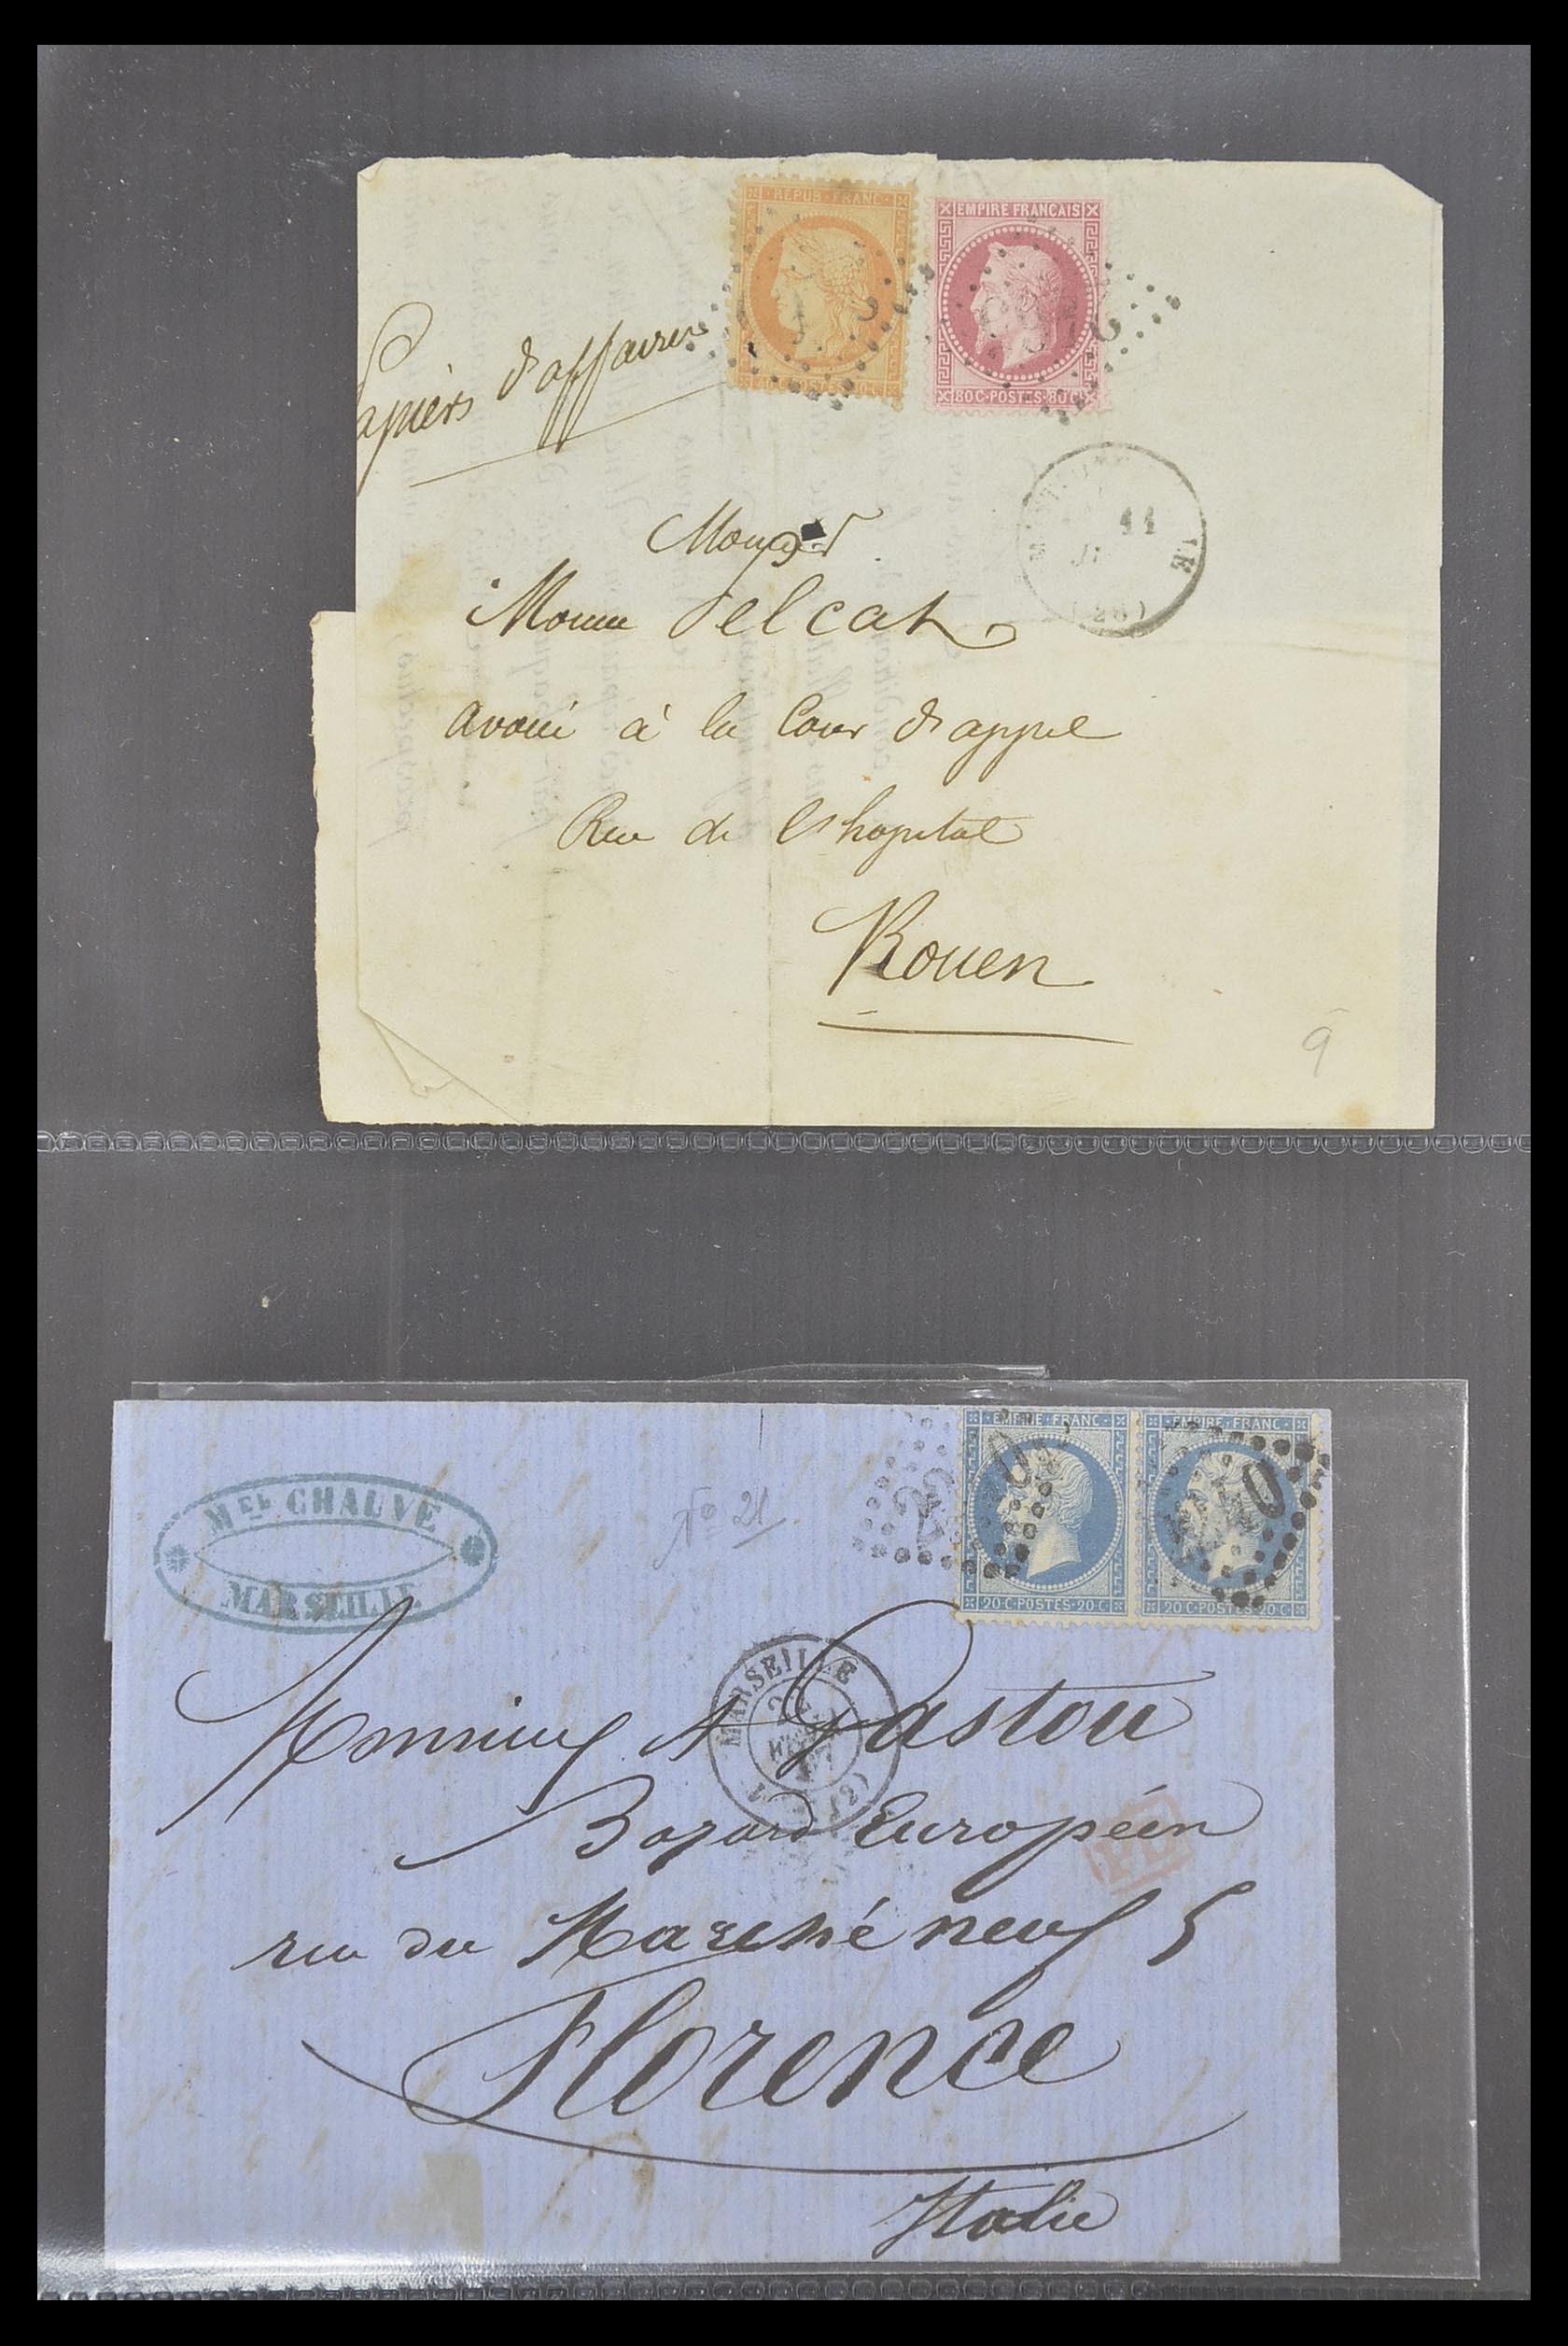 REPUB·FRANC·
40 C·POSTES·40 C
EMPIRE FRANÇAIS
80C·POSTES·80C
apiers d'affaires
11
(28)
avoué à la Cour d'appel
Rue de l'hopital
Rouen
9
Mel CHAUVE
MARSEILLE
No 21
EMPIRE·FRANC·
20 C·POSTES·20 C
EMPIRE·FRANC·
20 C·POSTES·20 C
MARSEILLE
(12)
Monsieur A Pastou
Bazard Européen
rue du Marché neuf 5
Florence
Italie